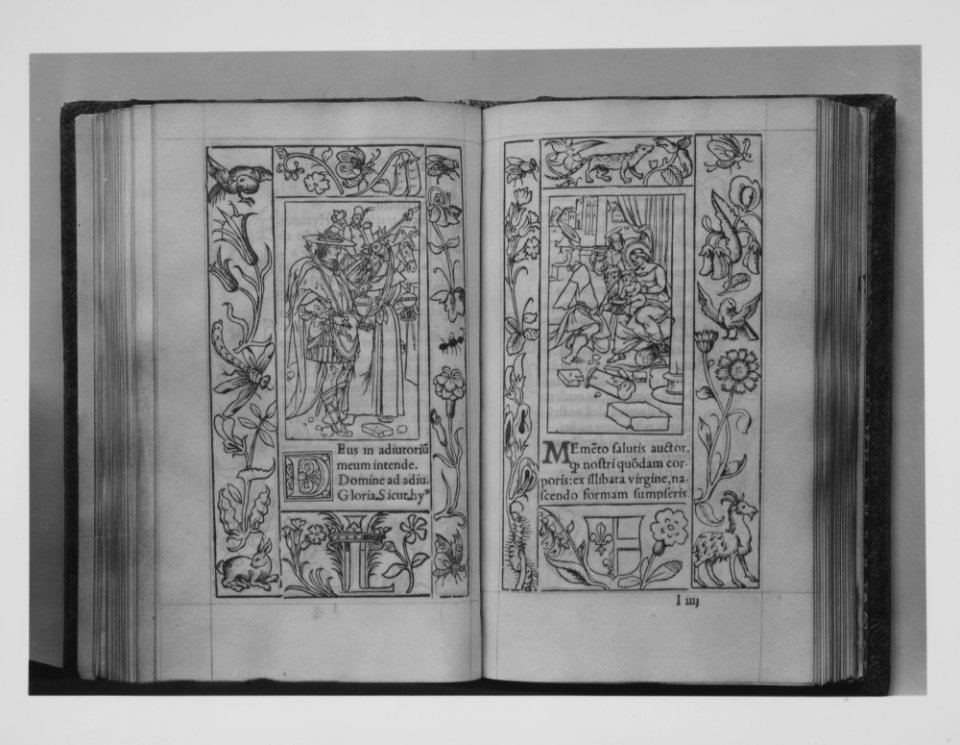 Deus in adiutoriũ
meum intende.
Domine ad adiu.
Gloria. Sicut. hyꝰ
L
MEmẽto salutis auctor,
ꝙ nostri quõdam cor-
poris: ex illibata virgine, na-
scendo formam sumpseris.
I iiij